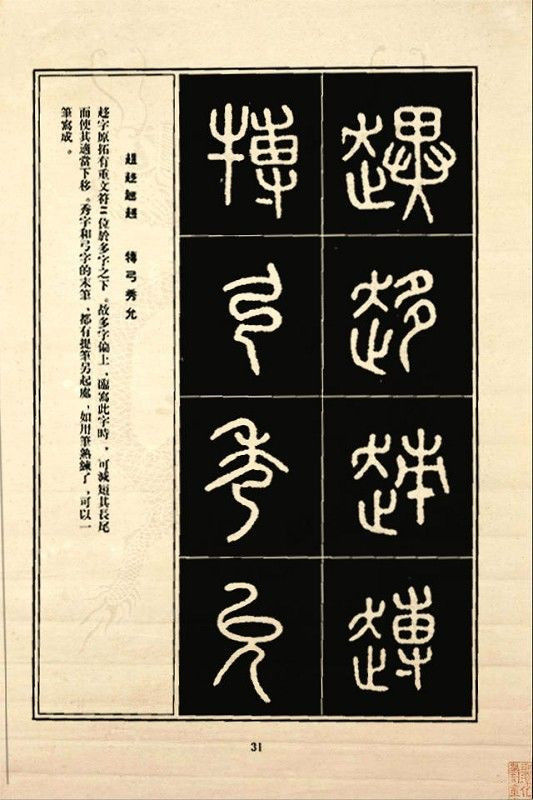 趍
弓秀允
趍 弓秀允
趍字原拓有重文符〓位於多字之下。故多字偏上,臨寫此字時,可減短其長尾
而使其適當下移。秀字和弓字的末筆,都有提筆另起處,如用筆熟練了,可以一
筆寫成。
31